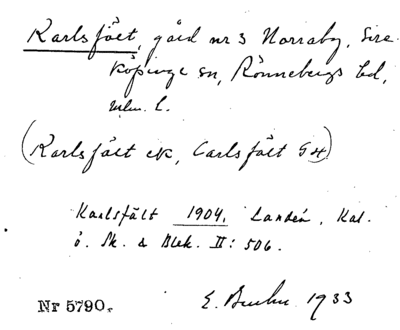 Karlsfält, gård nr 3 Norraby, Sire-
köpinge sn, Rönnebergs hd,
Mlm. l.
(Karlsfält ek, Carlsfält G4)
Karlsfält 1904. Landén, Kat.
ö. Sk. & Blek. II: 506.
Nr 5790. E. 1933